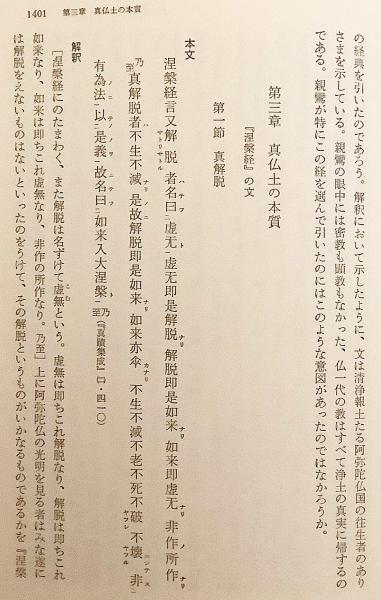 1401　第三章　真仏土の本質
の経典を引いたのであろう。解釈において示したように、文は清浄報土たる阿弥陀仏国の往生者のあり
さまを示している。親鸞の眼中には密教も顕教もなかった、仏一代の教はすべて浄土の真実に帰するの
である。親鸞が特にこの経を選んで引いたのにはこのような意図があったのではなかろうか。
第三章　真仏土の本質
『涅槃経』の文
第一節　真解脱
本文
涅槃経言又解脱者名曰虚无虚无即是解脱解脱即是如来如来即虚无非作所作
乃至真解脱者不生不滅是故解脱即是如来如来亦尒不生不滅不老不死不破不壊非
有為法以是義故名曰如来入大涅槃乃至（『真蹟集成』二・四一〇）
解釈
［涅槃経にのたまわく、また解脱は名ずけて虚無という。虚無は即ちこれ解脱なり、解脱は即ちこれ
如来なり、如来は即ちこれ虚無なり、非作の所作なり。乃至］上に阿弥陀仏の光明を見る者はみな遂に
は解脱をえないものはないといったのをうけて、その解脱というものがいかなるものであるかを『涅槃